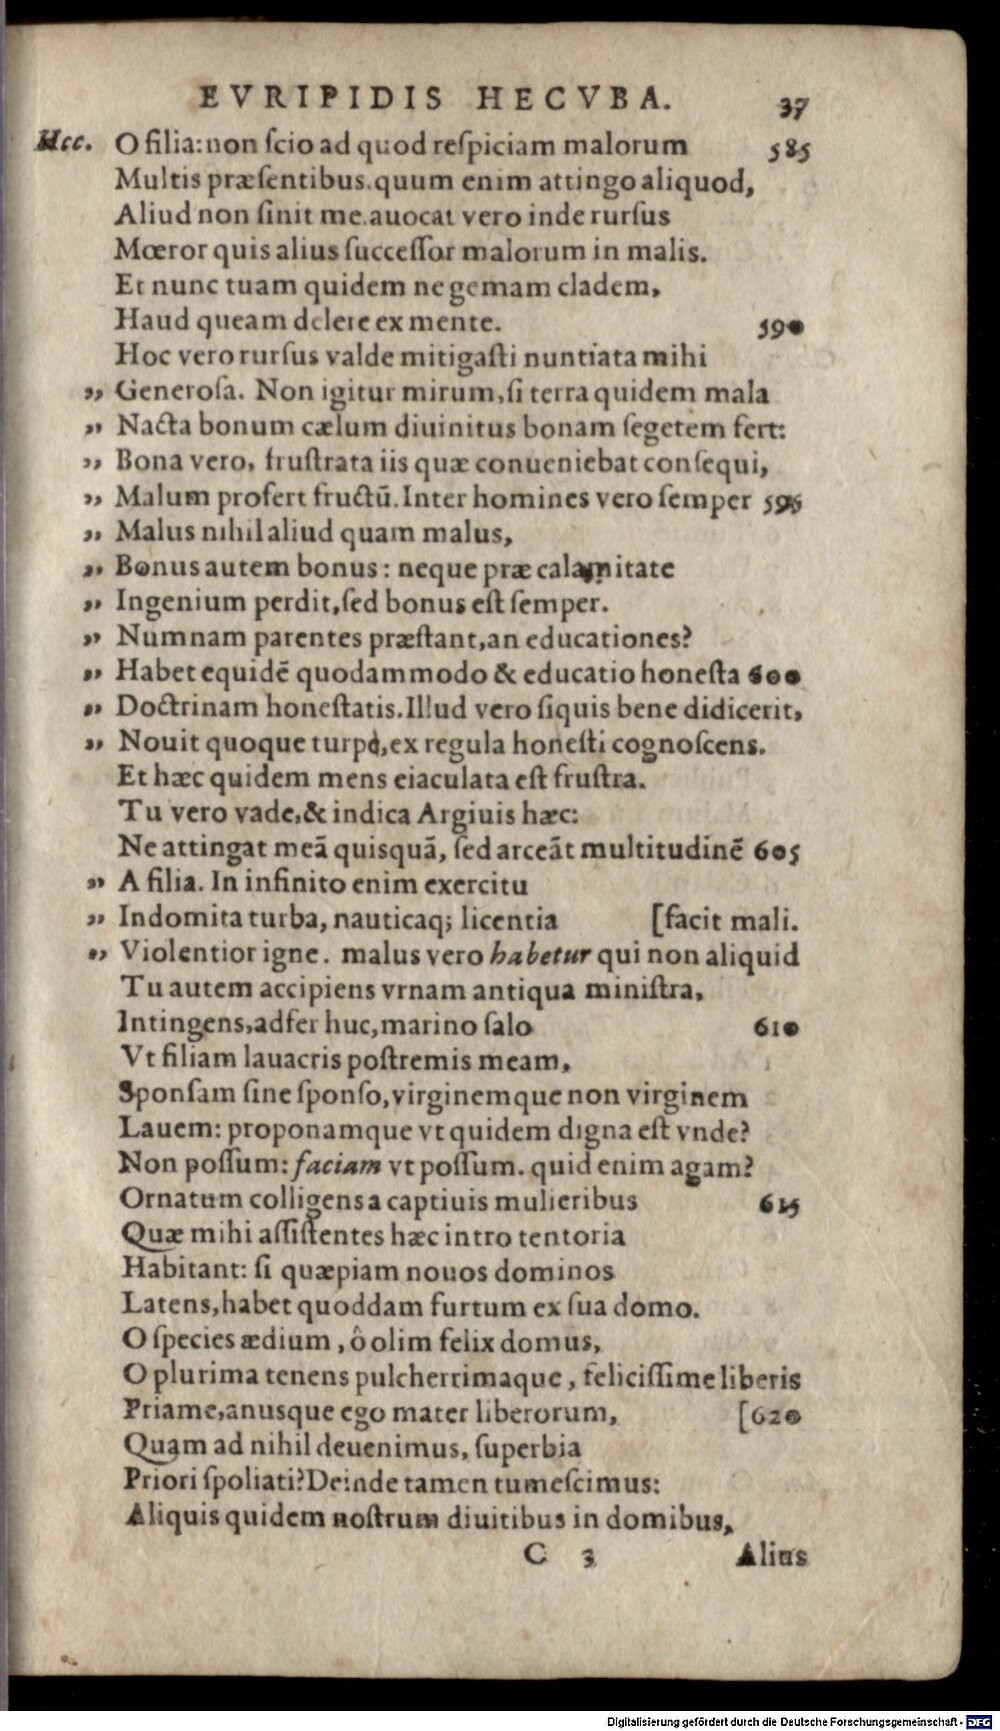 EVRIPIDIS HECVBA. 37
Hec. O filia: non ſcio ad quod reſpiciam malorum 585
Multis præſentibus. quum enim attingo aliquod,
Aliud non ſinit me. auocat vero inde rurſus
Mœror quis alius ſucceſſor malorum in malis.
Et nunc tuam quidem ne gemam cladem,
Haud queam delere ex mente. 590
Hoc vero rurſus valde mitigaſti nuntiata mihi
„ Generoſa. Non igitur mirum, ſi terra quidem mala
„ Nacta bonum cælum diuinitus bonam ſegetem fert:
„ Bona vero, fruſtrata iis quæ conueniebat conſequi,
„ Malum profert fructū. Inter homines vero ſemper 595
„ Malus nihil aliud quam malus,
„ Bonus autem bonus: neque præ calamitate
„ Ingenium perdit, ſed bonus eſt ſemper.
„ Numnam parentes præſtant, an educationes?
„ Habet equidē quodammodo & educatio honeſta 600
„ Doctrinam honeſtatis. Illud vero ſiquis bene didicerit,
„ Nouit quoque turpe, ex regula honeſti cognoſcens.
Et hæc quidem mens eiaculata eſt fruſtra.
Tu vero vade, & indica Argiuis hæc:
Ne attingat meā quisquā, ſed arceāt multitudinē 605
„ A filia. In infinito enim exercitu
„ Indomita turba, nauticaq; licentia [facit mali.
„ Violentior igne. malus vero habetur qui non aliquid
Tu autem accipiens vrnam antiqua miniſtra,
Intingens, adfer huc, marino ſalo 610
Vt filiam lauacris poſtremis meam,
Sponſam ſine ſponſo, virginemque non virginem
Lauem: proponamque vt quidem digna eſt vnde?
Non poſſum: faciam vt poſſum. quid enim agam?
Ornatum colligens a captiuis mulieribus 615
Quæ mihi aſſiſtentes hæc intro tentoria
Habitant: ſi quæpiam nouos dominos
Latens, habet quoddam furtum ex ſua domo.
O ſpecies ædium, ô olim felix domus,
O plurima tenens pulcherrimaque, feliciſſime liberis
Priame, anusque ego mater liberorum, [620
Quam ad nihil deuenimus, ſuperbia
Priori ſpoliati? Deinde tamen tumeſcimus:
Aliquis quidem noſtrum diuitibus in domibus,
C 3 Alius
Digitalisierung gefördert durch die Deutsche Forschungsgemeinschaft - DFG